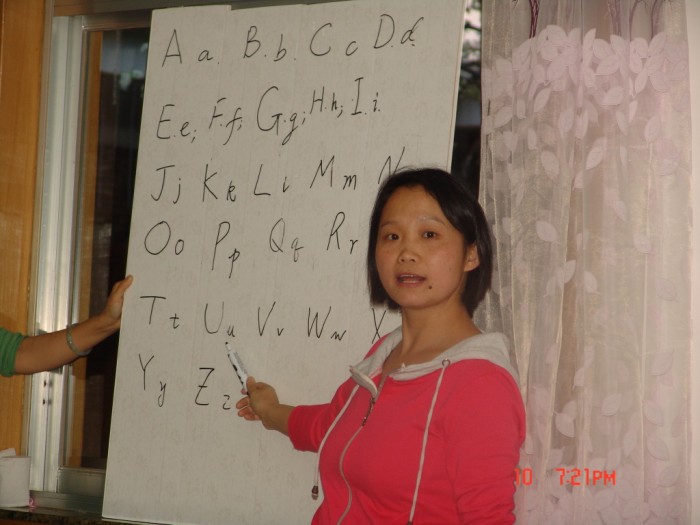 A a. B.b. C c D.d.
E.e; F.f; G.g; H.h; I.i.
J j K k L l M m N
O o P p Q q R r
T t U u V v W w X
Y y Z z
10 7:21PM